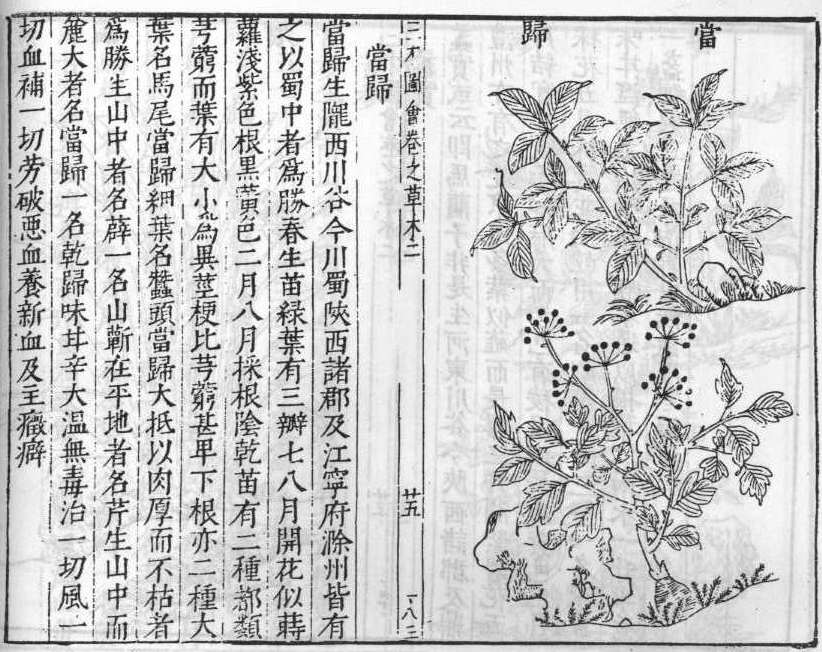 當歸
三才圖會卷之草木二
廿五
一八二
當歸
當歸生隴西川谷今川蜀陝西諸郡及江寧府滁州皆有
之以蜀中者爲勝春生苗緑葉有三瓣七八月開花似蒔
蘿淺紫色根黑黃色二月八月採根陰乾苗有二種都類
芎藭而葉有大小爲異莖梗比芎藭甚卑下根亦二種大
葉名馬尾當歸細葉名蠶頭當歸大抵以肉厚而不枯者
爲勝生山中者名薜一名山蘄在平地者名芹生山中而
麄大者名當歸一名乾歸味甘辛大溫無毒治一切風一
切血補一切劳破悪血養新血及主癥癖